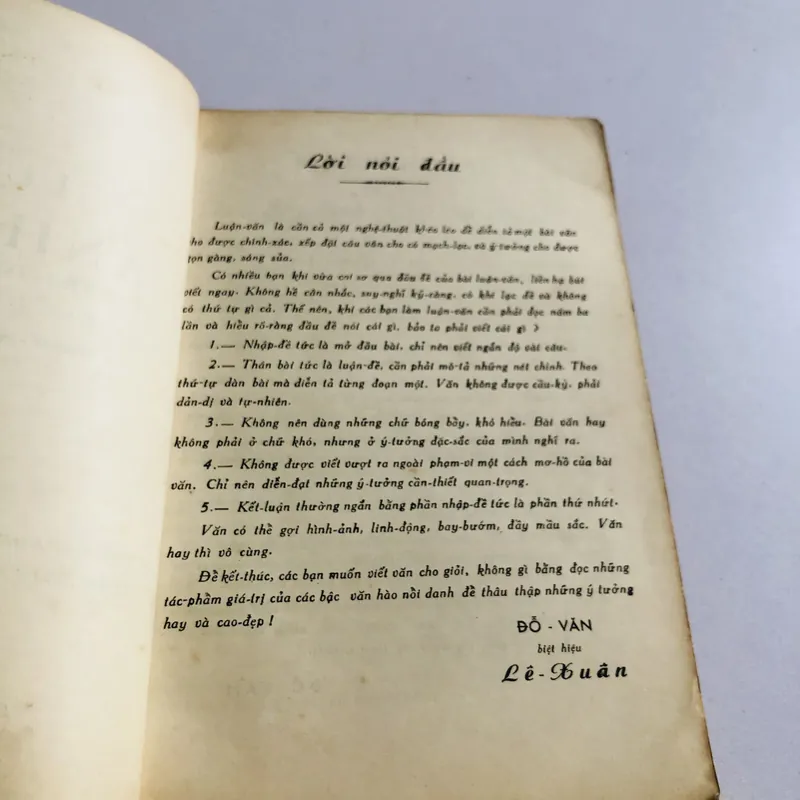 Lời nói đầu
Luận-văn là cần có một nghệ-thuật khéo léo để diễn tả một bài văn
cho được chính-xác, xếp đặt câu văn cho có mạch-lạc, và ý tưởng cho được
gọn gàng, sáng sủa.
Có nhiều bạn khi vừa coi sơ qua đầu đề của bài luận-văn, liền hạ bút
viết ngay. Không hề cân nhắc, suy-nghĩ kỹ-ràng, có khi lạc đề và không
có thứ tự gì cả. Thế nên, khi các bạn làm luận-văn cần phải đọc năm ba
lần và hiểu rõ-ràng đầu đề nói cái gì, bảo ta phải viết cái gì ?
1.— Nhập-đề tức là mở đầu bài, chỉ nên viết ngắn độ vài câu.
2.— Thân bài tức là luận-đề, cần phải mô-tả những nét chính. Theo
thứ-tự dàn bài mà diễn tả từng đoạn một. Văn không được cầu-kỳ, phải
dản-dị và tự-nhiên.
3.— Không nên dùng những chữ bóng bẩy, khó hiểu. Bài văn hay
không phải ở chữ khó, nhưng ở ý-tưởng đặc-sắc của mình nghĩ ra.
4.— Không được viết vượt ra ngoài phạm-vi một cách mơ-hồ của bài
văn. Chỉ nên diễn-đạt những ý-tưởng cần-thiết quan-trọng.
5.— Kết-luận thường ngắn bằng phần nhập-đề tức là phần thứ nhứt.
Văn có thể gợi hình-ảnh, linh-động, bay-bướm, đầy mầu sắc. Văn
hay thì vô cùng.
Để kết-thúc, các bạn muốn viết văn cho giỏi, không gì bằng đọc những
tác-phẩm giá-trị của các bậc văn hào nổi danh để thâu thập những ý tưởng
hay và cao-đẹp !
ĐỖ - VĂN
biệt hiệu
Lê-Xuân